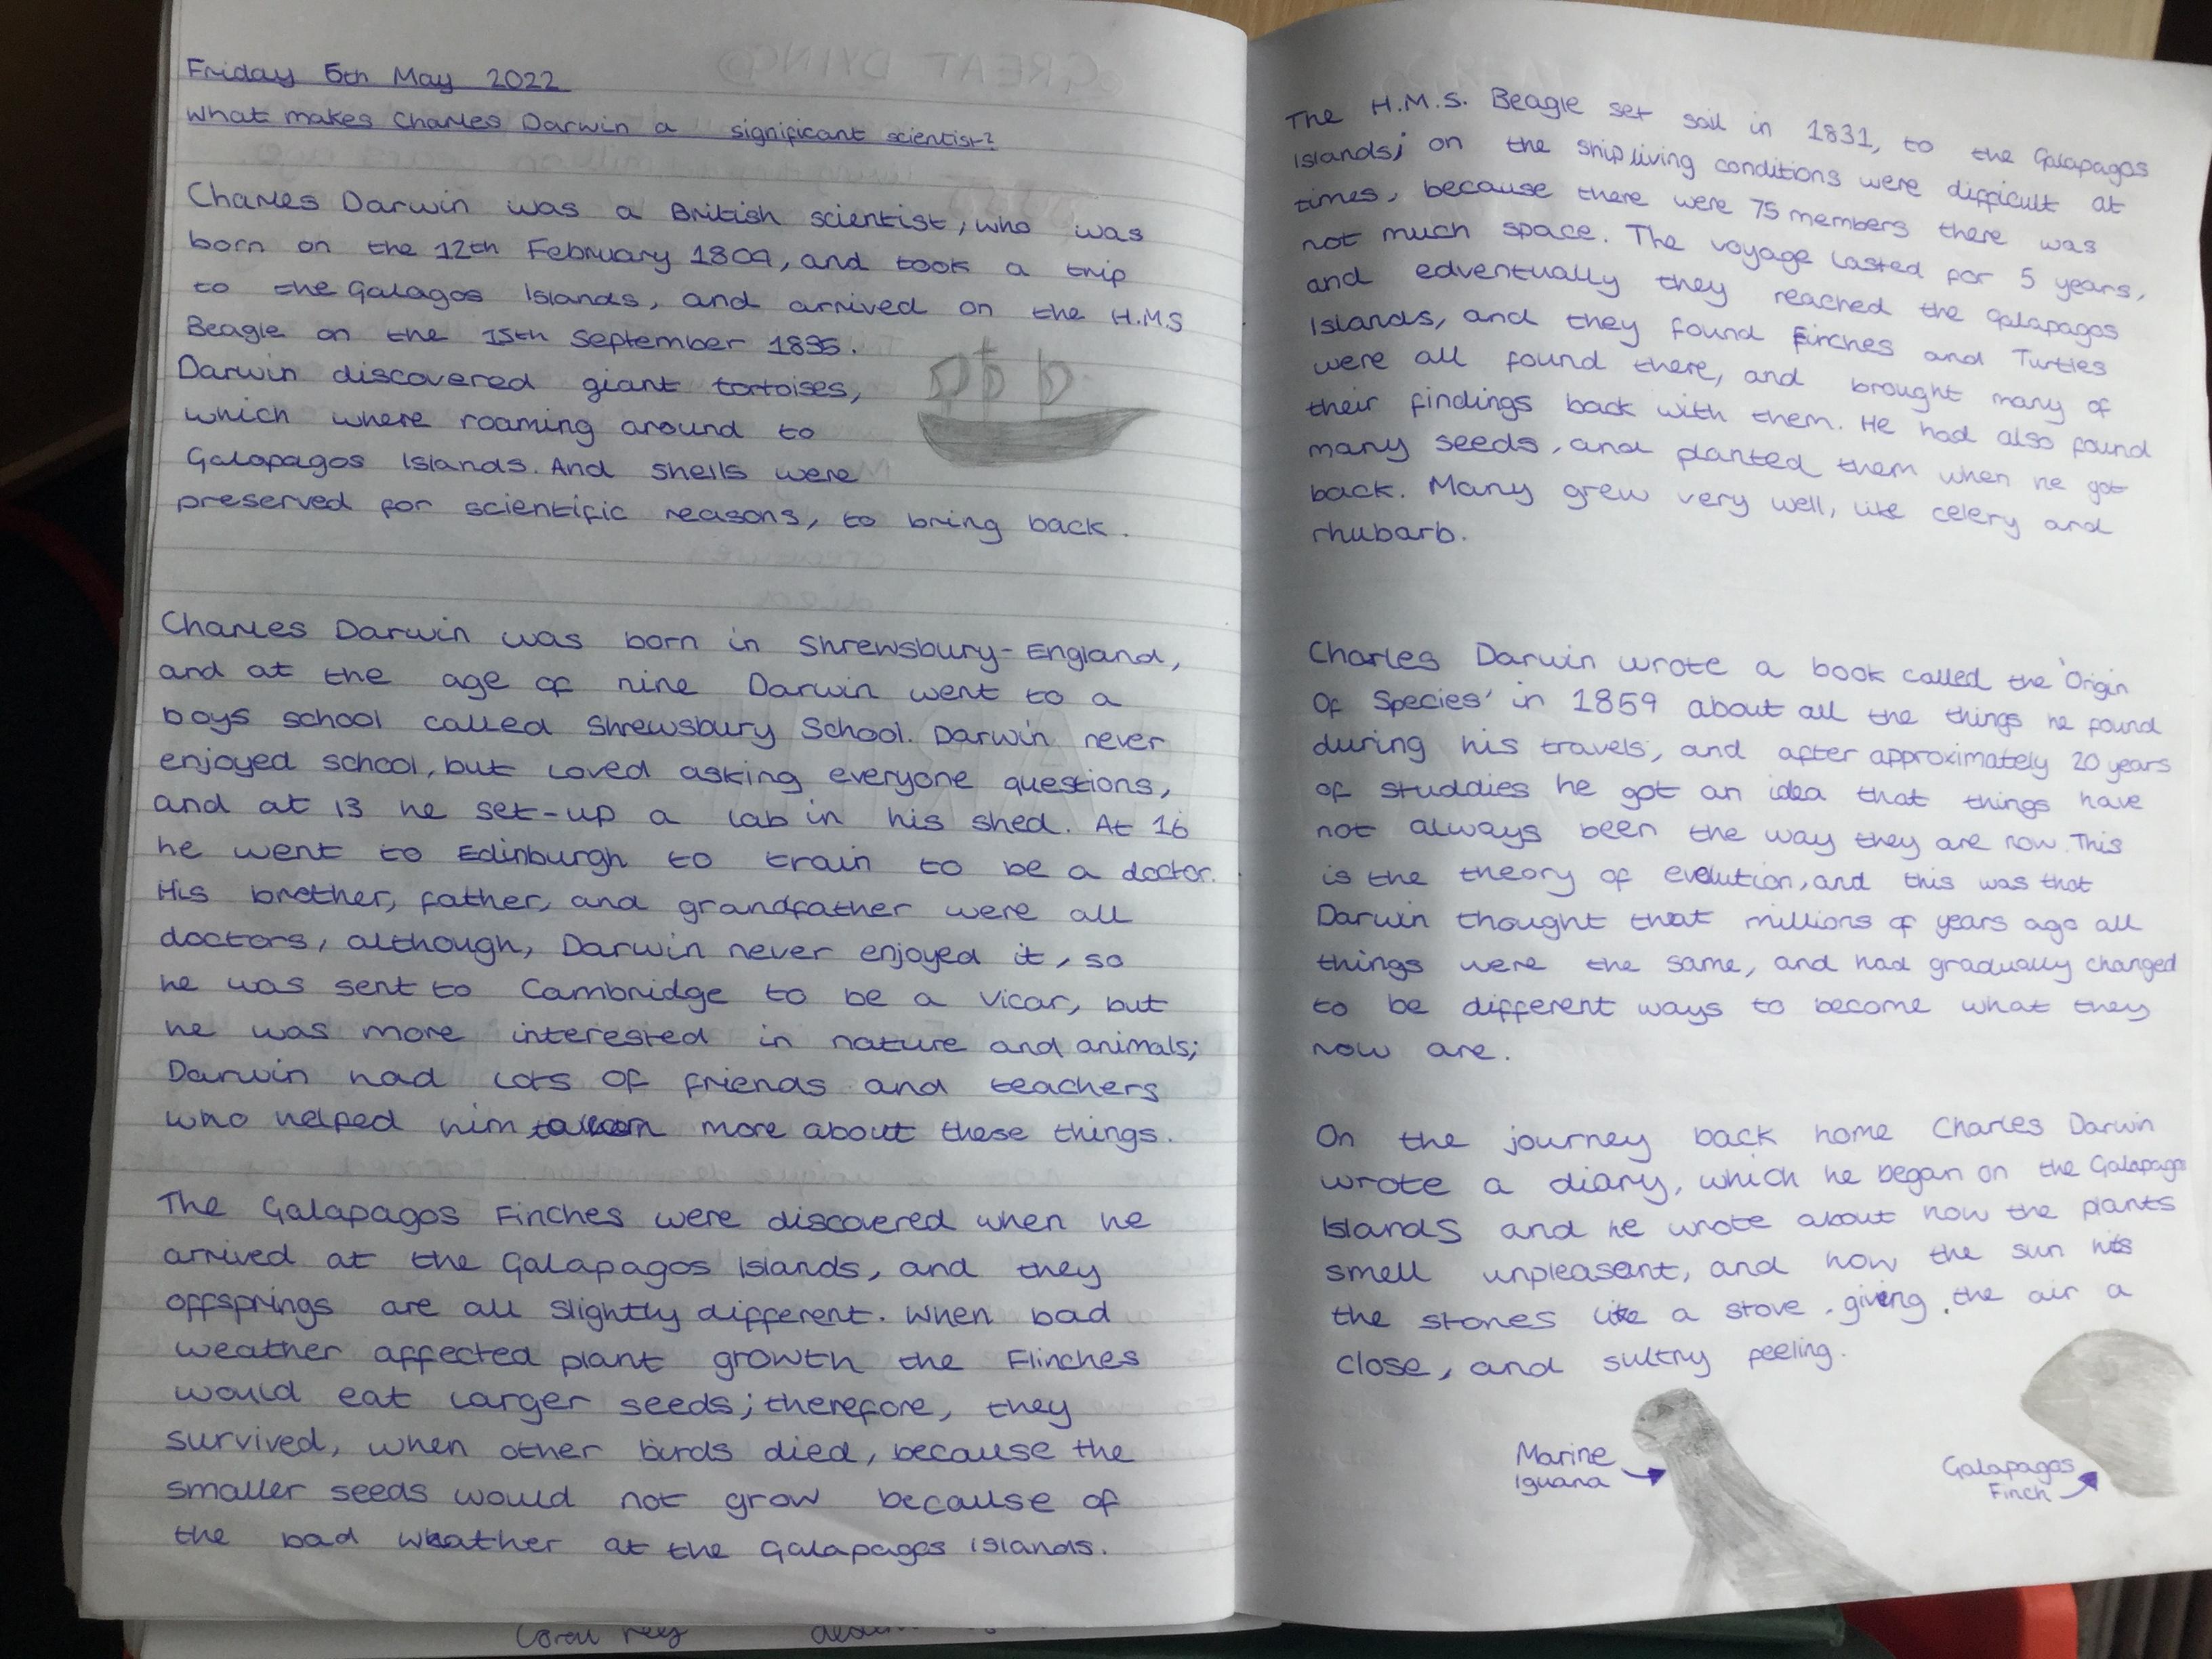 Friday 6th May 2022
What makes Charles Darwin a significant scientist?
Charles Darwin was a British scientist, who was
born on the 12th February 1809, and took a trip
to the Galagos Islands, and arrived on the H.M.S
Beagle on the 15th September 1835.
Darwin discovered giant tortoises,
which where roaming around to
Galapagos Islands. And shells were
preserved for scientific reasons, to bring back.
Charles Darwin was born in Shrewsbury-England,
and at the age of nine Darwin went to a
boys school called Shrewsbury School. Darwin never
enjoyed school, but loved asking everyone questions,
and at 13 he set-up a lab in his shed. At 16
he went to Edinburgh to train to be a doctor.
His brother, father, and grandfather were all
doctors, although, Darwin never enjoyed it, so
he was sent to Cambridge to be a vicar, but
he was more interested in nature and animals;
Darwin had lots of friends and teachers
who helped him to learn more about these things.
The Galapagos Finches were discovered when he
arrived at the Galapagos Islands, and they
offsprings are all slightly different. When bad
weather affected plant growth the Flinches
would eat larger seeds; therefore, they
survived, when other birds died, because the
smaller seeds would not grow because of
the bad weather at the Galapagos islands.
Coral reef
The H.M.S. Beagle set sail in 1831, to the Galapagos
Islands; on the ship living conditions were difficult at
times, because there were 75 members there was
not much space. The voyage lasted for 5 years,
and edventually they reached the Galapagos
Islands, and they found Finches and Turtles
were all found there, and brought many of
their findings back with them. He had also found
many seeds, and planted them when he got
back. Many grew very well, like celery and
rhubarb.
Charles Darwin wrote a book called the 'Origin
Of Species' in 1859 about all the things he found
during his travels, and after approximately 20 years
of studdies he got an idea that things have
not always been the way they are now. This
is the theory of evolution, and this was that
Darwin thought that millions of years ago all
things were the same, and had gradually changed
to be different ways to become what they
now are.
On the journey back home Charles Darwin
wrote a diary, which he began on the Galapagos
Islands and he wrote about how the plants
smell unpleasant, and how the sun hits
the stones like a stove, giving the air a
close, and sultry feeling.
Marine
iguana
Galapagos
Finch